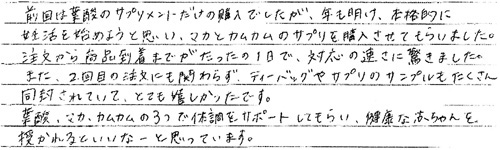 前回は葉酸のサプリメントだけの購入でしたが、年も明け、本格的に
妊活を始めようと思い、マカとカムカムのサプリを購入させてもらいました。
注文から商品到着までがたったの1日で、対応の速さに驚きました。
また、2回目の注文にも関わらず、ティーバッグやサプリのサンプルもたくさん
同封されていて、とても嬉しかったです。
葉酸、マカ、カムカムの3つで体調をサポートしてもらい、健康な赤ちゃんを
授かれるといいなーと思っています。